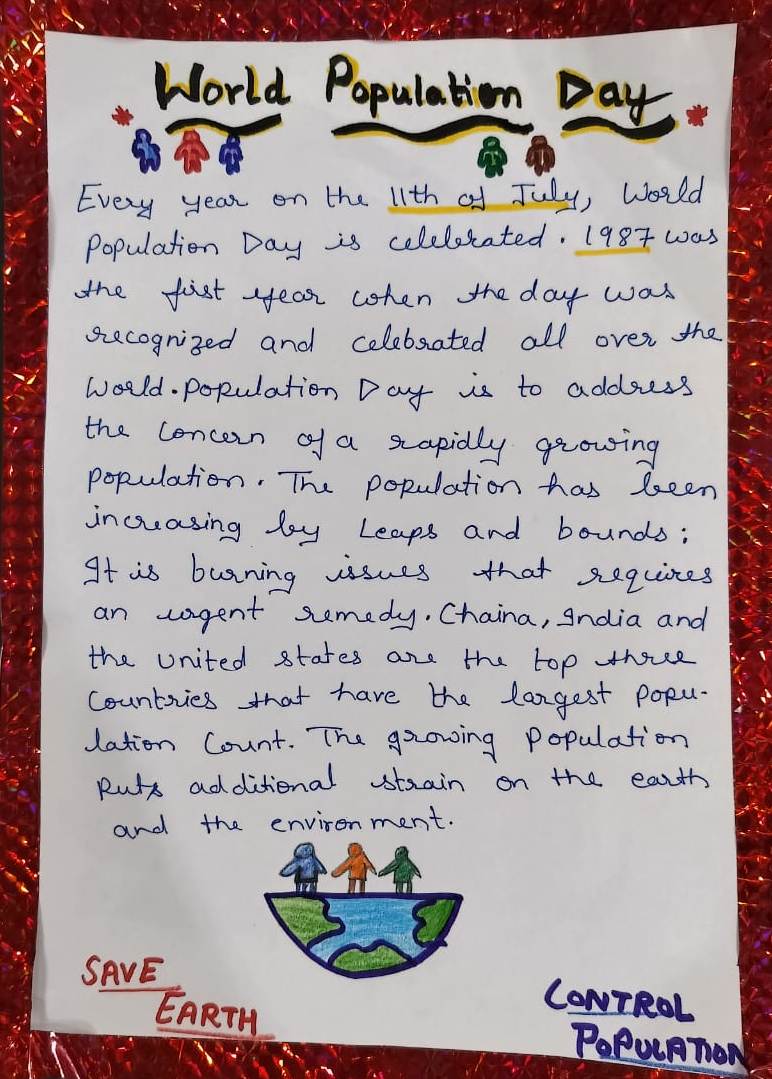 World Population Day
Every year on the 11th of July, World
Population Day is celebrated. 1987 was
the first year when the day was
recognized and celebrated all over the
World. Population Day is to address
the concern of a rapidly growing
population. The population has been
increasing by Leaps and bounds;
It is burning issues that requires
an urgent remedy. Chaina, India and
the United states are the top three
Countries that have the largest popu-
lation Count. The growing Population
Puts additional strain on the earth
and the environment.
SAVE
EARTH
CONTROL
POPULATION